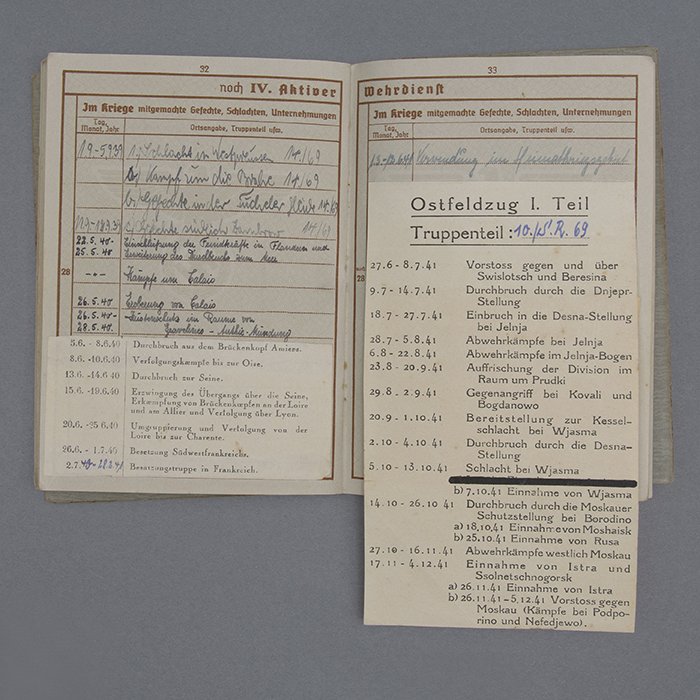 32
noch IV. Aktiver
Im Kriege mitgemachte Gefechte, Schlachten, Unternehmungen
Tag, Monat, Jahr
Ortsangabe, Truppenteil usw.
1.9-5.9.39 1.) Schlacht in Westpreußen 14/69
a) Kampf um die Brahe 14/69
b) Gefechte in der Tucheler Heide 14/69
11.9-18.9.39 c) Gefechte südlich 14/69
22.5.40- der Feindkräfte in Flandern und
25.5.40 Erweiterung des Durchbruchs zum Meer
28
-"- Kämpfe um Calais
26.5.40 Eroberung von Calais
26.5.40- Küstenschutz im Raume von
28.5.40 Gravelines - Authie-Mündung
5.6. - 8.6.40 Durchbruch aus dem Brückenkopf Amiens.
8.6.-10.6.40 Verfolgungskämpfe bis zur Oise.
13.6.-14.6.40 Durchbruch zur Seine.
15.6.-19.6.40 Erzwingung des Übergangs über die Seine,
Erkämpfung von Brückenköpfen an der Loire
und am Allier und Verfolgung über Lyon.
20.6.-25.6.40 Umgruppierung und Verfolgung von der
Loire bis zur Charente.
26.6.- 1.7.40 Besetzung Südwestfrankreichs.
2.7.40- Besatzungstruppe in Frankreich.
33
Wehrdienst
Im Kriege mitgemachte Gefechte, Schlachten, Unternehmungen
Tag, Monat, Jahr
Ortsangabe, Truppenteil usw.
Verwendung im Heimatkriegsgebiet
Ostfeldzug I. Teil
Truppenteil: 10./S.R. 69
27.6 - 8.7.41 Vorstoss gegen und über
Swislotsch und Beresina
9.7 - 14.7.41 Durchbruch durch die Dnjepr-
Stellung
18.7 - 27.7.41 Einbruch in die Desna-Stellung
bei Jelnja
28.7 - 5.8.41 Abwehrkämpfe bei Jelnja
6.8 - 22.8.41 Abwehrkämpfe im Jelnja-Bogen
23.8 - 20.9.41 Auffrischung der Division im
Raum um Prudki
29.8 - 2.9.41 Gegenangriff bei Kovali und
Bogdanowo
20.9 - 1.10.41 Bereitstellung zur Kessel-
schlacht bei Wjasma
2.10 - 4.10.41 Durchbruch durch die Desna-
Stellung
5.10 - 13.10.41 Schlacht bei Wjasma
b) 7.10.41 Einnahme von Wjasma
14.10 - 26.10.41 Durchbruch durch die Moskauer
Schutzstellung bei Borodino
a) 18.10.41 Einnahme von Moshaisk
b) 25.10.41 Einnahme von Rusa
27.10 - 16.11.41 Abwehrkämpfe westlich Moskau
17.11 - 4.12.41 Einnahme von Istra und
Ssolnetschnogorsk
a) 26.11.41 Einnahme von Istra
b) 26.11.41 - 5.12.41 Vorstoss gegen
Moskau (Kämpfe bei Podpo-
rino und Nefedjewo).